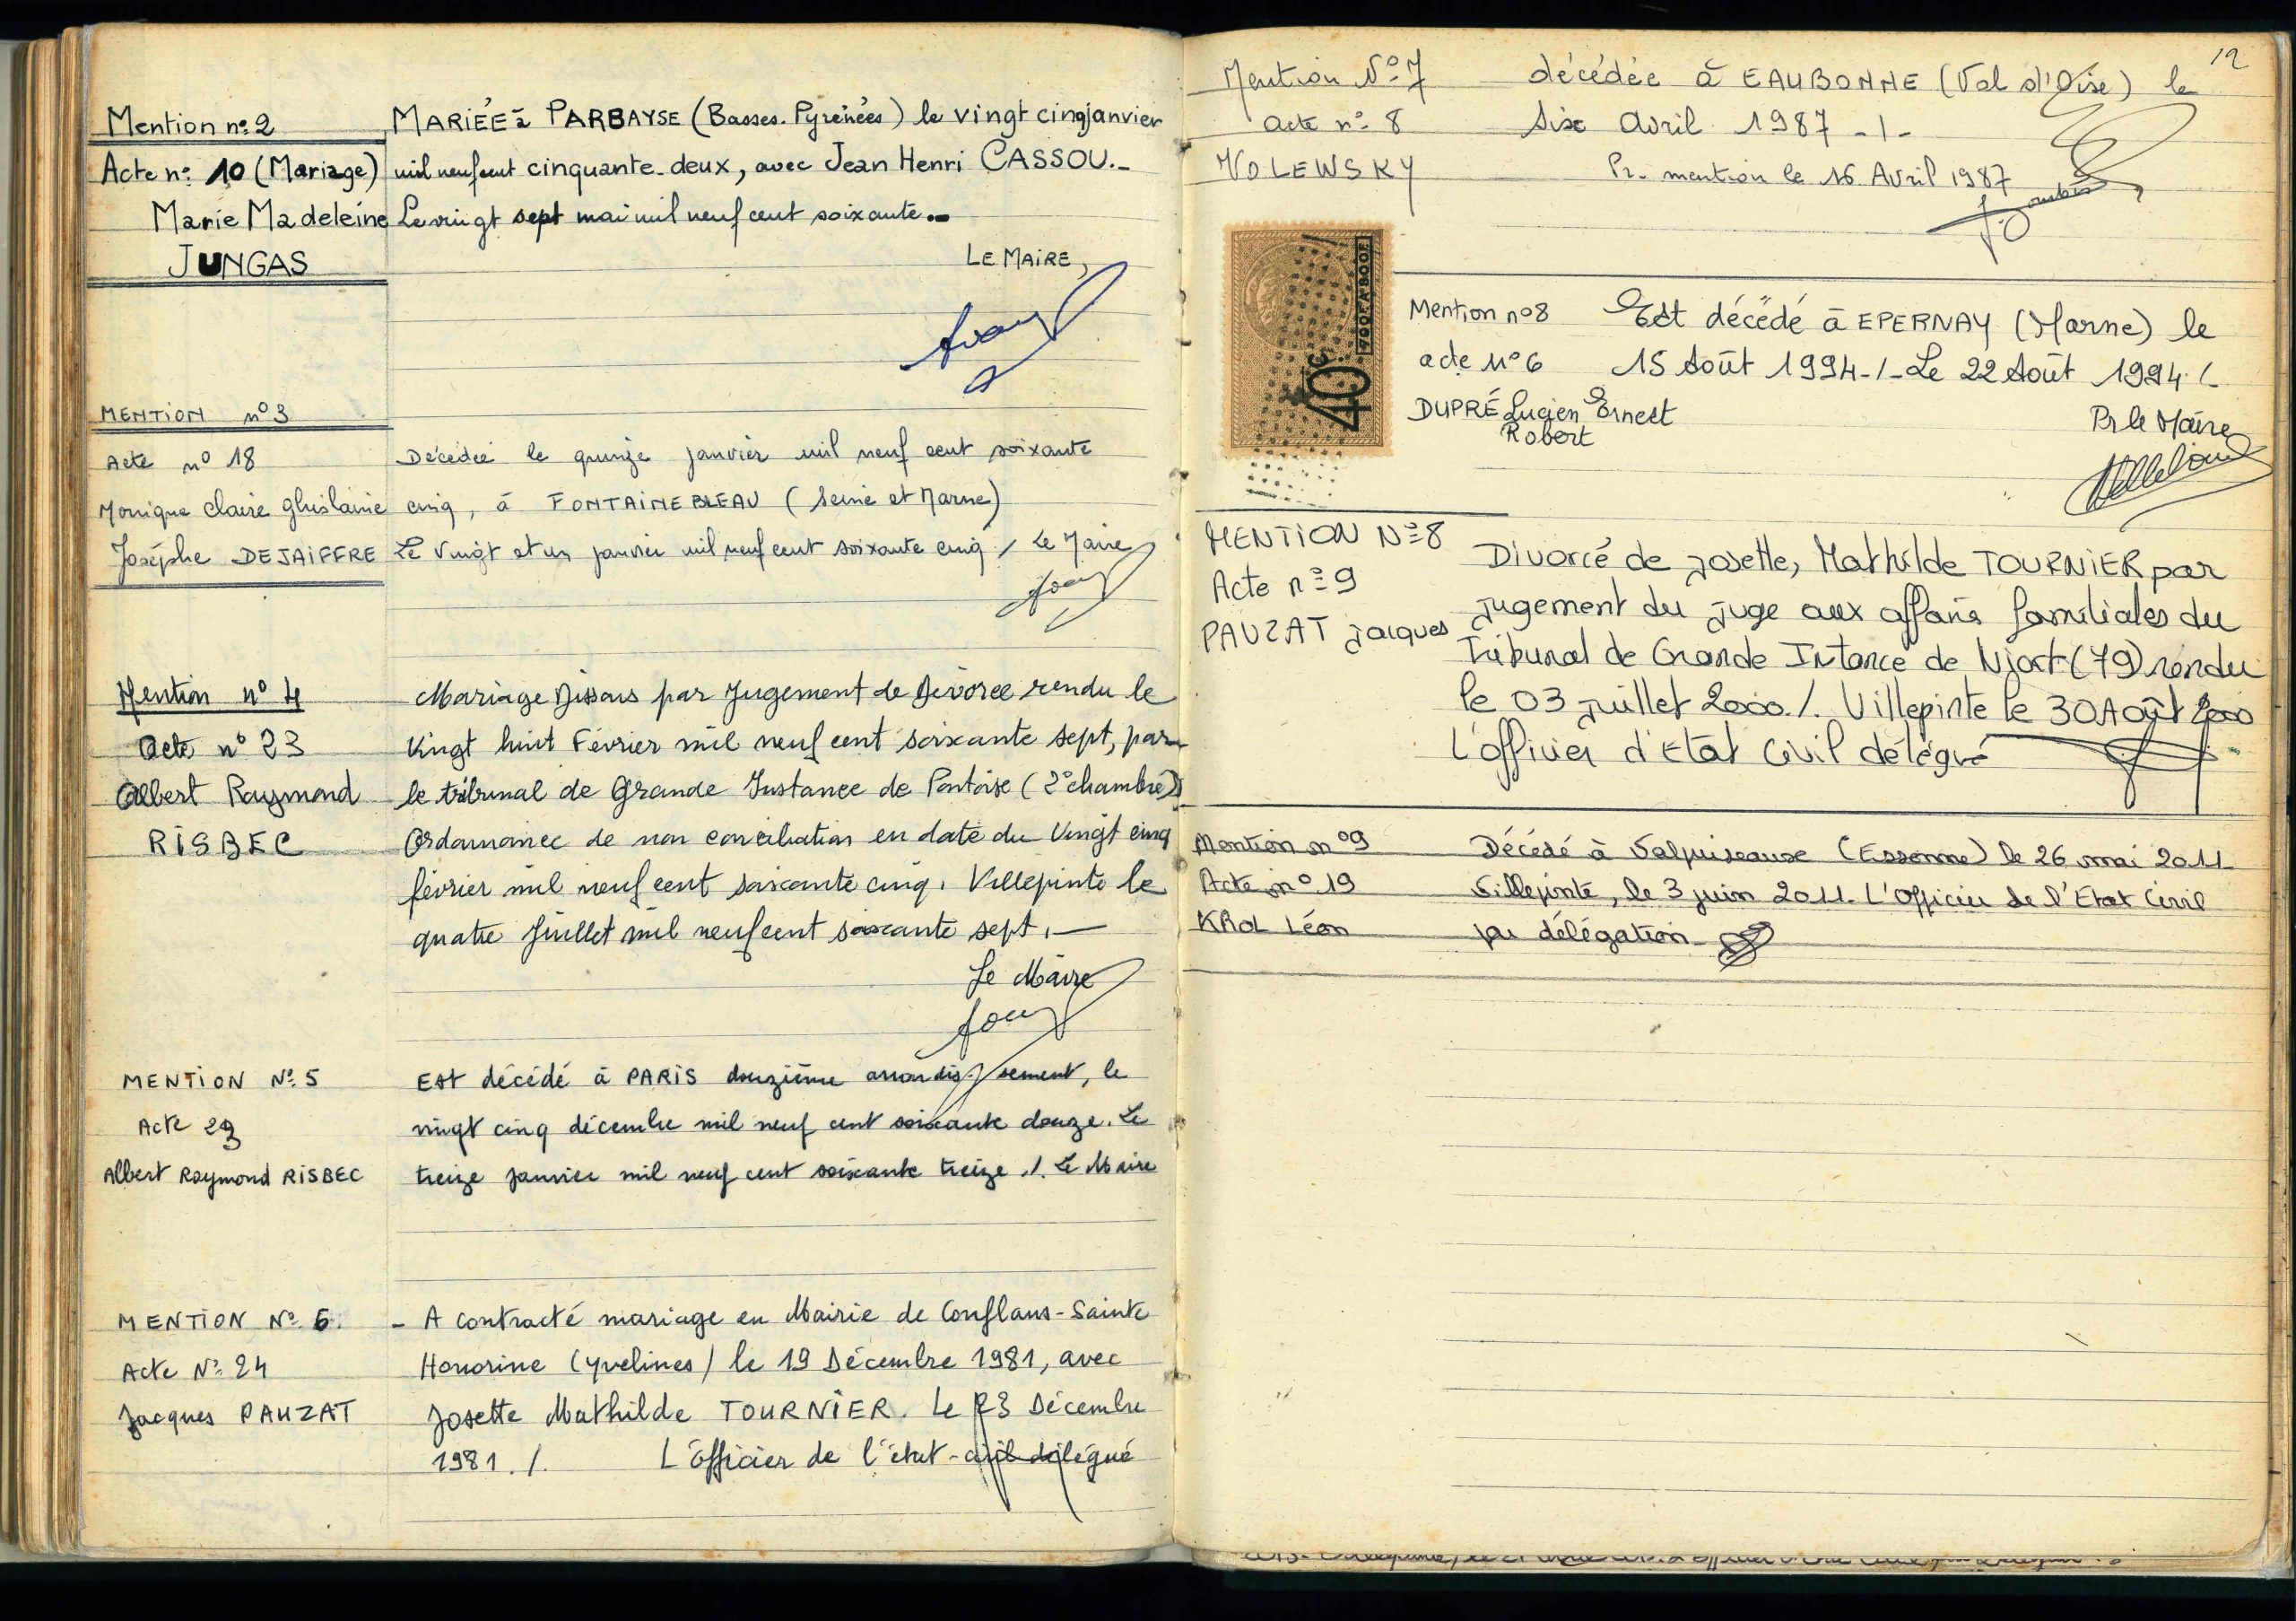 Mention nº 2
Acte nº 10 (Mariage)
Marie Madeleine
JUNGAS
MARIÉE à PARBAYSE (Basses-Pyrénées) le vingt cinq janvier
mil neuf cent cinquante-deux, avec Jean Henri CASSOU._
Le vingt sept mai mil neuf cent soixante._
LE MAIRE,
MENTION nº 3
Acte nº 18
Monique Claire Ghislaine
Josèphe DEJAIFFRE
Décédée le quinze janvier mil neuf cent soixante
cinq, à FONTAINEBLEAU (Seine et Marne)
Le vingt et un janvier mil neuf cent soixante cinq / Le Maire
Mention nº 4
Acte nº 23
Albert Raymond
RISBEC
Mariage dissous par Jugement de Divorce rendu le
Vingt huit Février mil neuf cent soixante sept, par
le tribunal de Grande Instance de Pontoise (2º chambre)
Ordonnance de non conciliation en date du Vingt cinq
février mil neuf cent soixante cinq. Villepinte le
quatre Juillet mil neuf cent soixante sept._
Le Maire
MENTION Nº 5
Acte 23
Albert Raymond RISBEC
Est décédé à PARIS douzième arrondissement, le
vingt cinq décembre mil neuf cent soixante douze. Le
treize janvier mil neuf cent soixante treize ./. Le Maire
MENTION Nº 6
Acte Nº 24
Jacques PAUZAT
- A contracté mariage en Mairie de Conflans-Sainte
Honorine (Yvelines) le 19 Décembre 1981, avec
Josette Mathilde TOURNIER. Le 23 Décembre
1981 ./. L'officier de l'état-civil délégué
12
Mention Nº 7
acte nº 8
WOLEWSKY
décédée à EAUBONNE (Val d'Oise) le
six Avril 1987 -/-
Pr. mention le 16 Avril 1987
40c
Mention nº 8
acte Nº 6
DUPRÉ Lucien Ernest
Robert
Est décédé à EPERNAY (Marne) le
15 Août 1994 -/- Le 22 Août 1994 /-
Pr le Maire
MENTION Nº 8
Acte nº 9
PAUZAT Jacques
Divorcé de Josette, Mathilde TOURNIER par
jugement du juge aux affaires familiales du
Tribunal de Grande Intance de Niort (79) rendu
le 03 juillet 2000 ./. Villepinte le 30 Août 2000
L'officier d'Etat Civil délégué
Mention nº 9
Acte nº 19
KROL Léon
Décédé à Valpuiseaux (Essonne) le 26 mai 2011
Villepinte, le 3 juin 2011. L'Officier de l'Etat Civil
par délégation